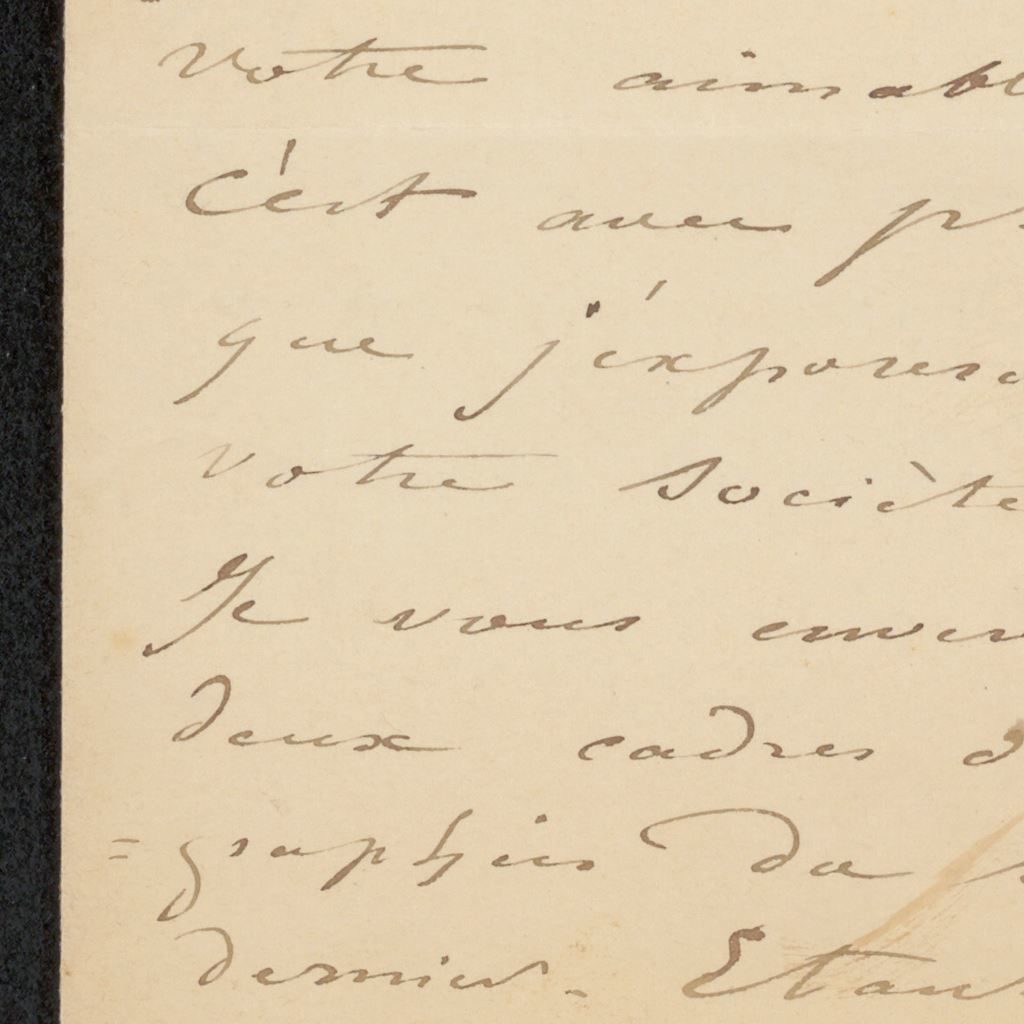 votre aimabl
C'est avec p
que j'éxposera
votre Sociète
Je vous enver
deux cadres d
=graphies du
dernier. Etan